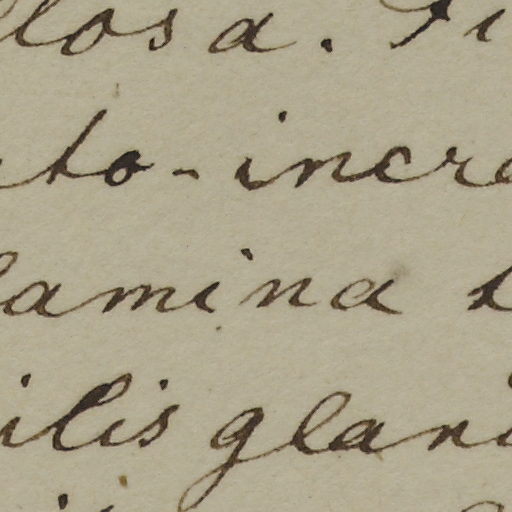 losa. Fi
to-incra
lamina
ilis glan